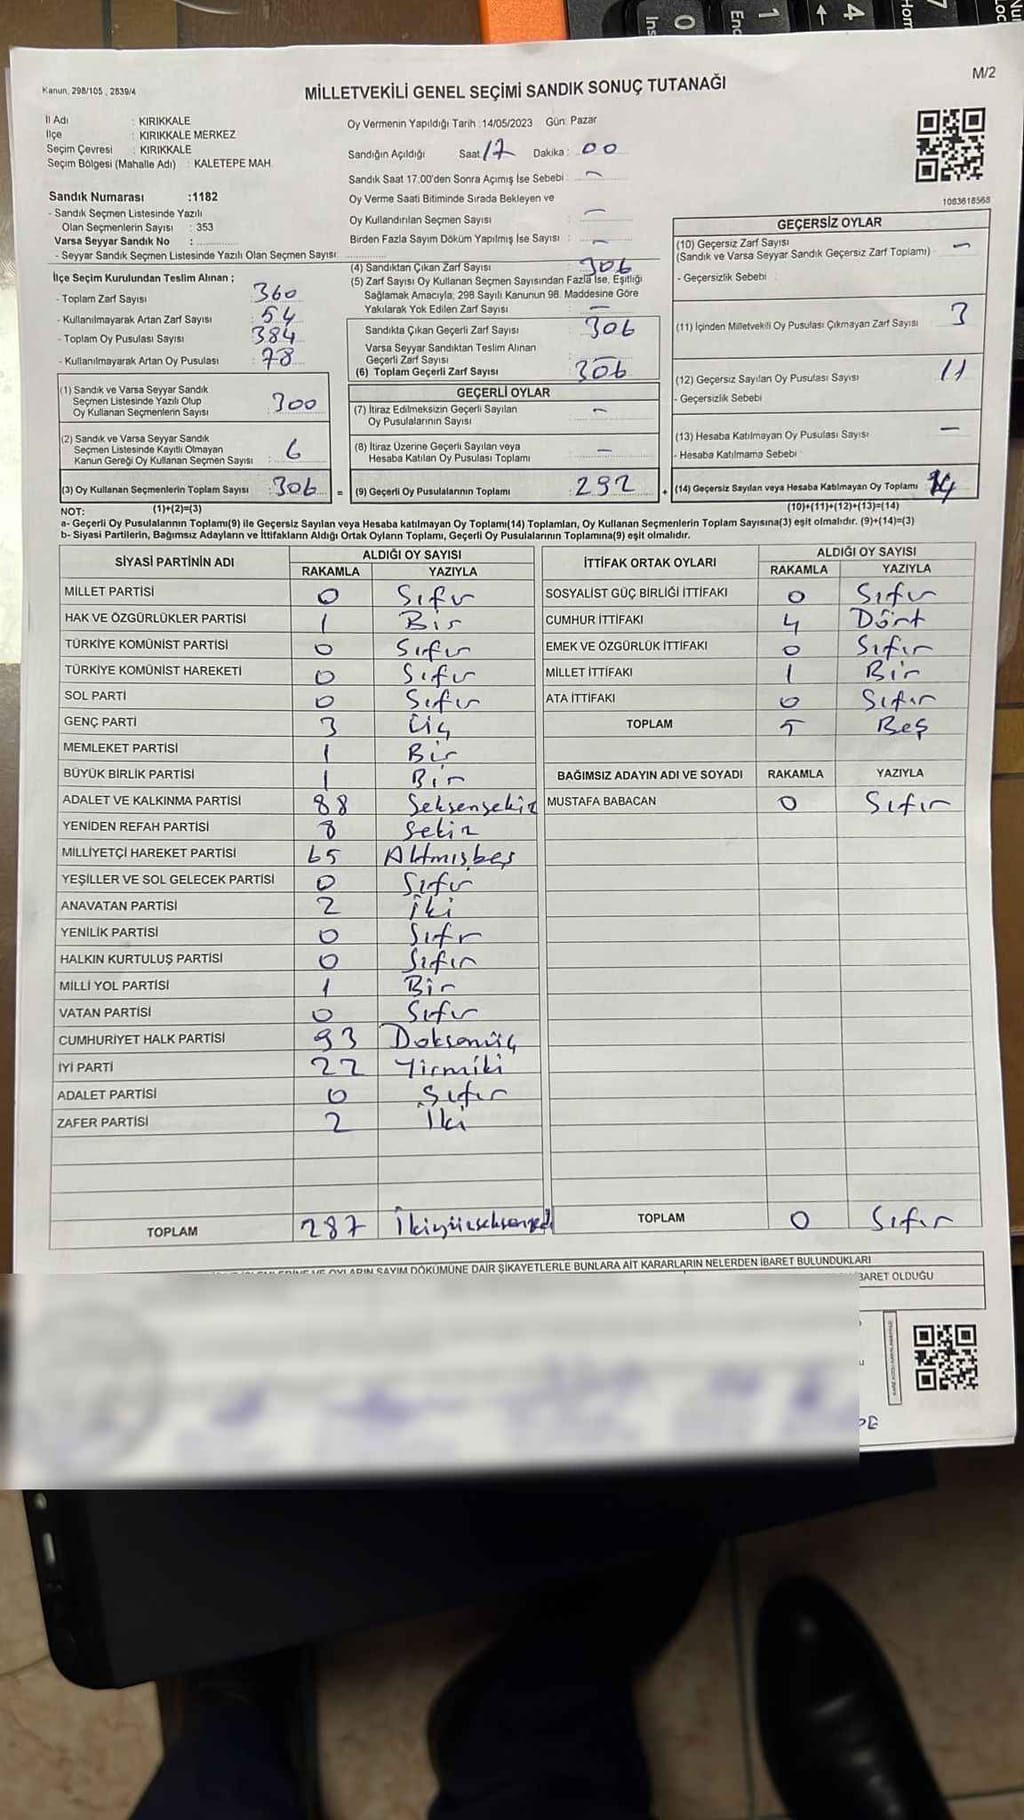 Kanun, 298/105 , 2839/4
MİLLETVEKİLİ GENEL SEÇİMİ SANDIK SONUÇ TUTANAĞI
M/2
İl Adı : KIRIKKALE
İlçe : KIRIKKALE MERKEZ
Seçim Çevresi : KIRIKKALE
Seçim Bölgesi (Mahalle Adı) : KALETEPE MAH.
Sandık Numarası :1182
- Sandık Seçmen Listesinde Yazılı
Olan Seçmenlerin Sayısı : 353
Varsa Seyyar Sandık No :
- Seyyar Sandık Seçmen Listesinde Yazılı Olan Seçmen Sayısı
Oy Vermenin Yapıldığı Tarih :14/05/2023 Gün: Pazar
Sandığın Açıldığı Saat 17 Dakika : 00
Sandık Saat 17:00'den Sonra Açımış İse Sebebi :
Oy Verme Saati Bitiminde Sırada Bekleyen ve
Oy Kullandırılan Seçmen Sayısı
Birden Fazla Sayım Döküm Yapılmış İse Sayısı :
1083618568
İlçe Seçim Kurulundan Teslim Alınan ;
- Toplam Zarf Sayısı 360
- Kullanılmayarak Artan Zarf Sayısı 54
- Toplam Oy Pusulası Sayısı 384
- Kullanılmayarak Artan Oy Pusulası 78
(1) Sandık ve Varsa Seyyar Sandık
Seçmen Listesinde Yazılı Olup
Oy Kullanan Seçmenlerin Sayısı : 300
(2) Sandık ve Varsa Seyyar Sandık
Seçmen Listesinde Kayıtlı Olmayan
Kanun Gereği Oy Kullanan Seçmen Sayısı : 6
(3) Oy Kullanan Seçmenlerin Toplam Sayısı : 306 =
(1)+(2)=(3)
(4) Sandıktan Çıkan Zarf Sayısı : 306
(5) Zarf Sayısı Oy Kullanan Seçmen Sayısından Fazla İse, Eşitliği
Sağlamak Amacıyla, 298 Sayılı Kanunun 98. Maddesine Göre
Yakılarak Yok Edilen Zarf Sayısı : —
Sandıkta Çıkan Geçerli Zarf Sayısı : 306
Varsa Seyyar Sandıktan Teslim Alınan
Geçerli Zarf Sayısı :
(6) Toplam Geçerli Zarf Sayısı : 306
GEÇERLİ OYLAR
(7) İtiraz Edilmeksizin Geçerli Sayılan
Oy Pusulalarının Sayısı : –
(8) İtiraz Üzerine Geçerli Sayılan veya
Hesaba Katılan Oy Pusulası Toplamı : –
(9) Geçerli Oy Pusulalarının Toplamı : 292 +
GEÇERSİZ OYLAR
(10) Geçersiz Zarf Sayısı
(Sandık ve Varsa Seyyar Sandık Geçersiz Zarf Toplamı) : –
- Geçersizlik Sebebi :
(11) İçinden Milletvekili Oy Pusulası Çıkmayan Zarf Sayısı : 3
(12) Geçersiz Sayılan Oy Pusulası Sayısı 11
- Geçersizlik Sebebi
(13) Hesaba Katılmayan Oy Pusulası Sayısı –
- Hesaba Katılmama Sebebi
(14) Geçersiz Sayılan veya Hesaba Katılmayan Oy Toplamı 14
(10)+(11)+(12)+(13)=(14)
NOT:
a- Geçerli Oy Pusulalarının Toplamı(9) ile Geçersiz Sayılan veya Hesaba katılmayan Oy Toplamı(14) Toplamları, Oy Kullanan Seçmenlerin Toplam Sayısına(3) eşit olmalıdır. (9)+(14)=(3)
b- Siyasi Partilerin, Bağımsız Adayların ve İttifakların Aldığı Ortak Oyların Toplamı, Geçerli Oy Pusulalarının Toplamına(9) eşit olmalıdır.
SİYASİ PARTİNİN ADI ALDIĞI OY SAYISI
RAKAMLA YAZIYLA
MİLLET PARTİSİ 0 Sıfır
HAK VE ÖZGÜRLÜKLER PARTİSİ 1 Bir
TÜRKİYE KOMÜNİST PARTİSİ 0 Sıfır
TÜRKİYE KOMÜNİST HAREKETİ 0 Sıfır
SOL PARTİ 0 Sıfır
GENÇ PARTİ 3 Üç
MEMLEKET PARTİSİ 1 Bir
BÜYÜK BİRLİK PARTİSİ 1 Bir
ADALET VE KALKINMA PARTİSİ 88 Seksensekiz
YENİDEN REFAH PARTİSİ 8 Sekiz
MİLLİYETÇİ HAREKET PARTİSİ 65 Altmışbeş
YEŞİLLER VE SOL GELECEK PARTİSİ 0 Sıfır
ANAVATAN PARTİSİ 2 İki
YENİLİK PARTİSİ 0 Sıfır
HALKIN KURTULUŞ PARTİSİ 0 Sıfır
MİLLİ YOL PARTİSİ 1 Bir
VATAN PARTİSİ 0 Sıfır
CUMHURİYET HALK PARTİSİ 93 Doksanüç
İYİ PARTİ 22 Yirmiiki
ADALET PARTİSİ 0 Sıfır
ZAFER PARTİSİ 2 İki
TOPLAM 287 İkiyüzseksenyedi
İTTİFAK ORTAK OYLARI ALDIĞI OY SAYISI
RAKAMLA YAZIYLA
SOSYALİST GÜÇ BİRLİĞİ İTTİFAKI 0 Sıfır
CUMHUR İTTİFAKI 4 Dört
EMEK VE ÖZGÜRLÜK İTTİFAKI 0 Sıfır
MİLLET İTTİFAKI 1 Bir
ATA İTTİFAKI 0 Sıfır
TOPLAM 5 Beş
BAĞIMSIZ ADAYIN ADI VE SOYADI RAKAMLA YAZIYLA
MUSTAFA BABACAN 0 Sıfır
TOPLAM 0 Sıfır
OYLARIN SAYIM DÖKÜMÜNE DAİR ŞİKAYETLERLE BUNLARA AİT KARARLARIN NELERDEN İBARET BULUNDUKLARI
BARET OLDUĞU
Ins
0
End
1
4
Hom
7